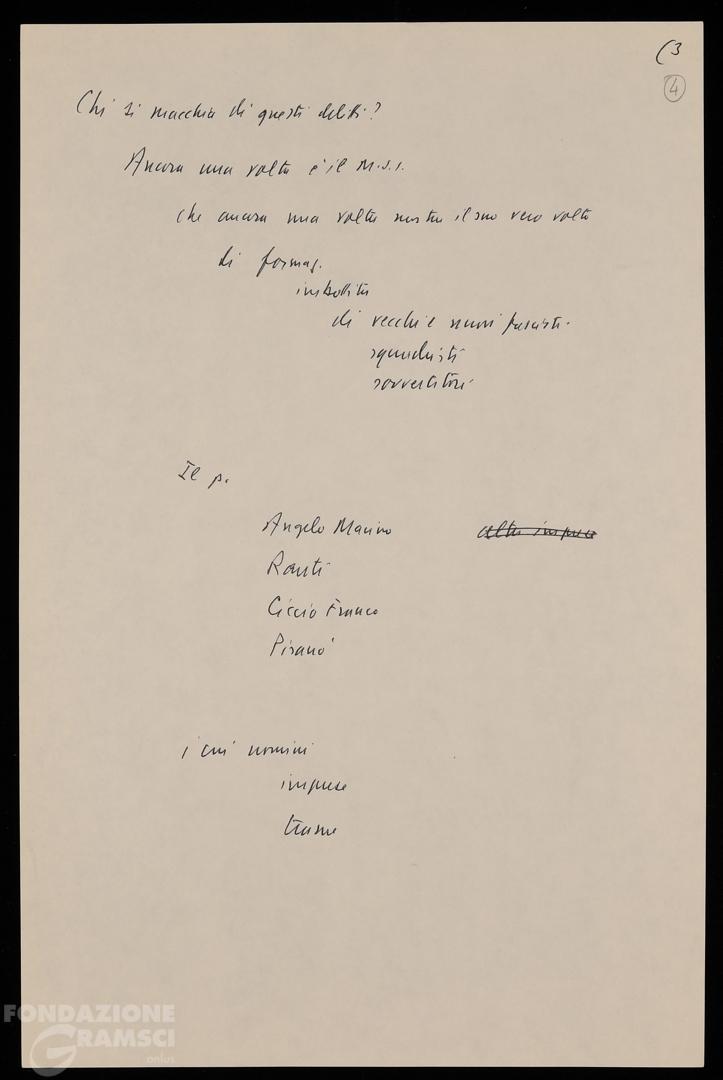 (3
4
Chi si macchia di questi delitti?
Ancora una volta è il M.S.I.
che ancora una volta mostra il suo vero volto
di formaz.
imbottita
di vecchi e nuovi fascisti.
squadristi
sovvertitori
Il p.
Angelo Manno
Rauti
Ciccio Franco
Pisanò
i cui uomini
imprese
trame
FONDAZIONE
GRAMSCI
onlus